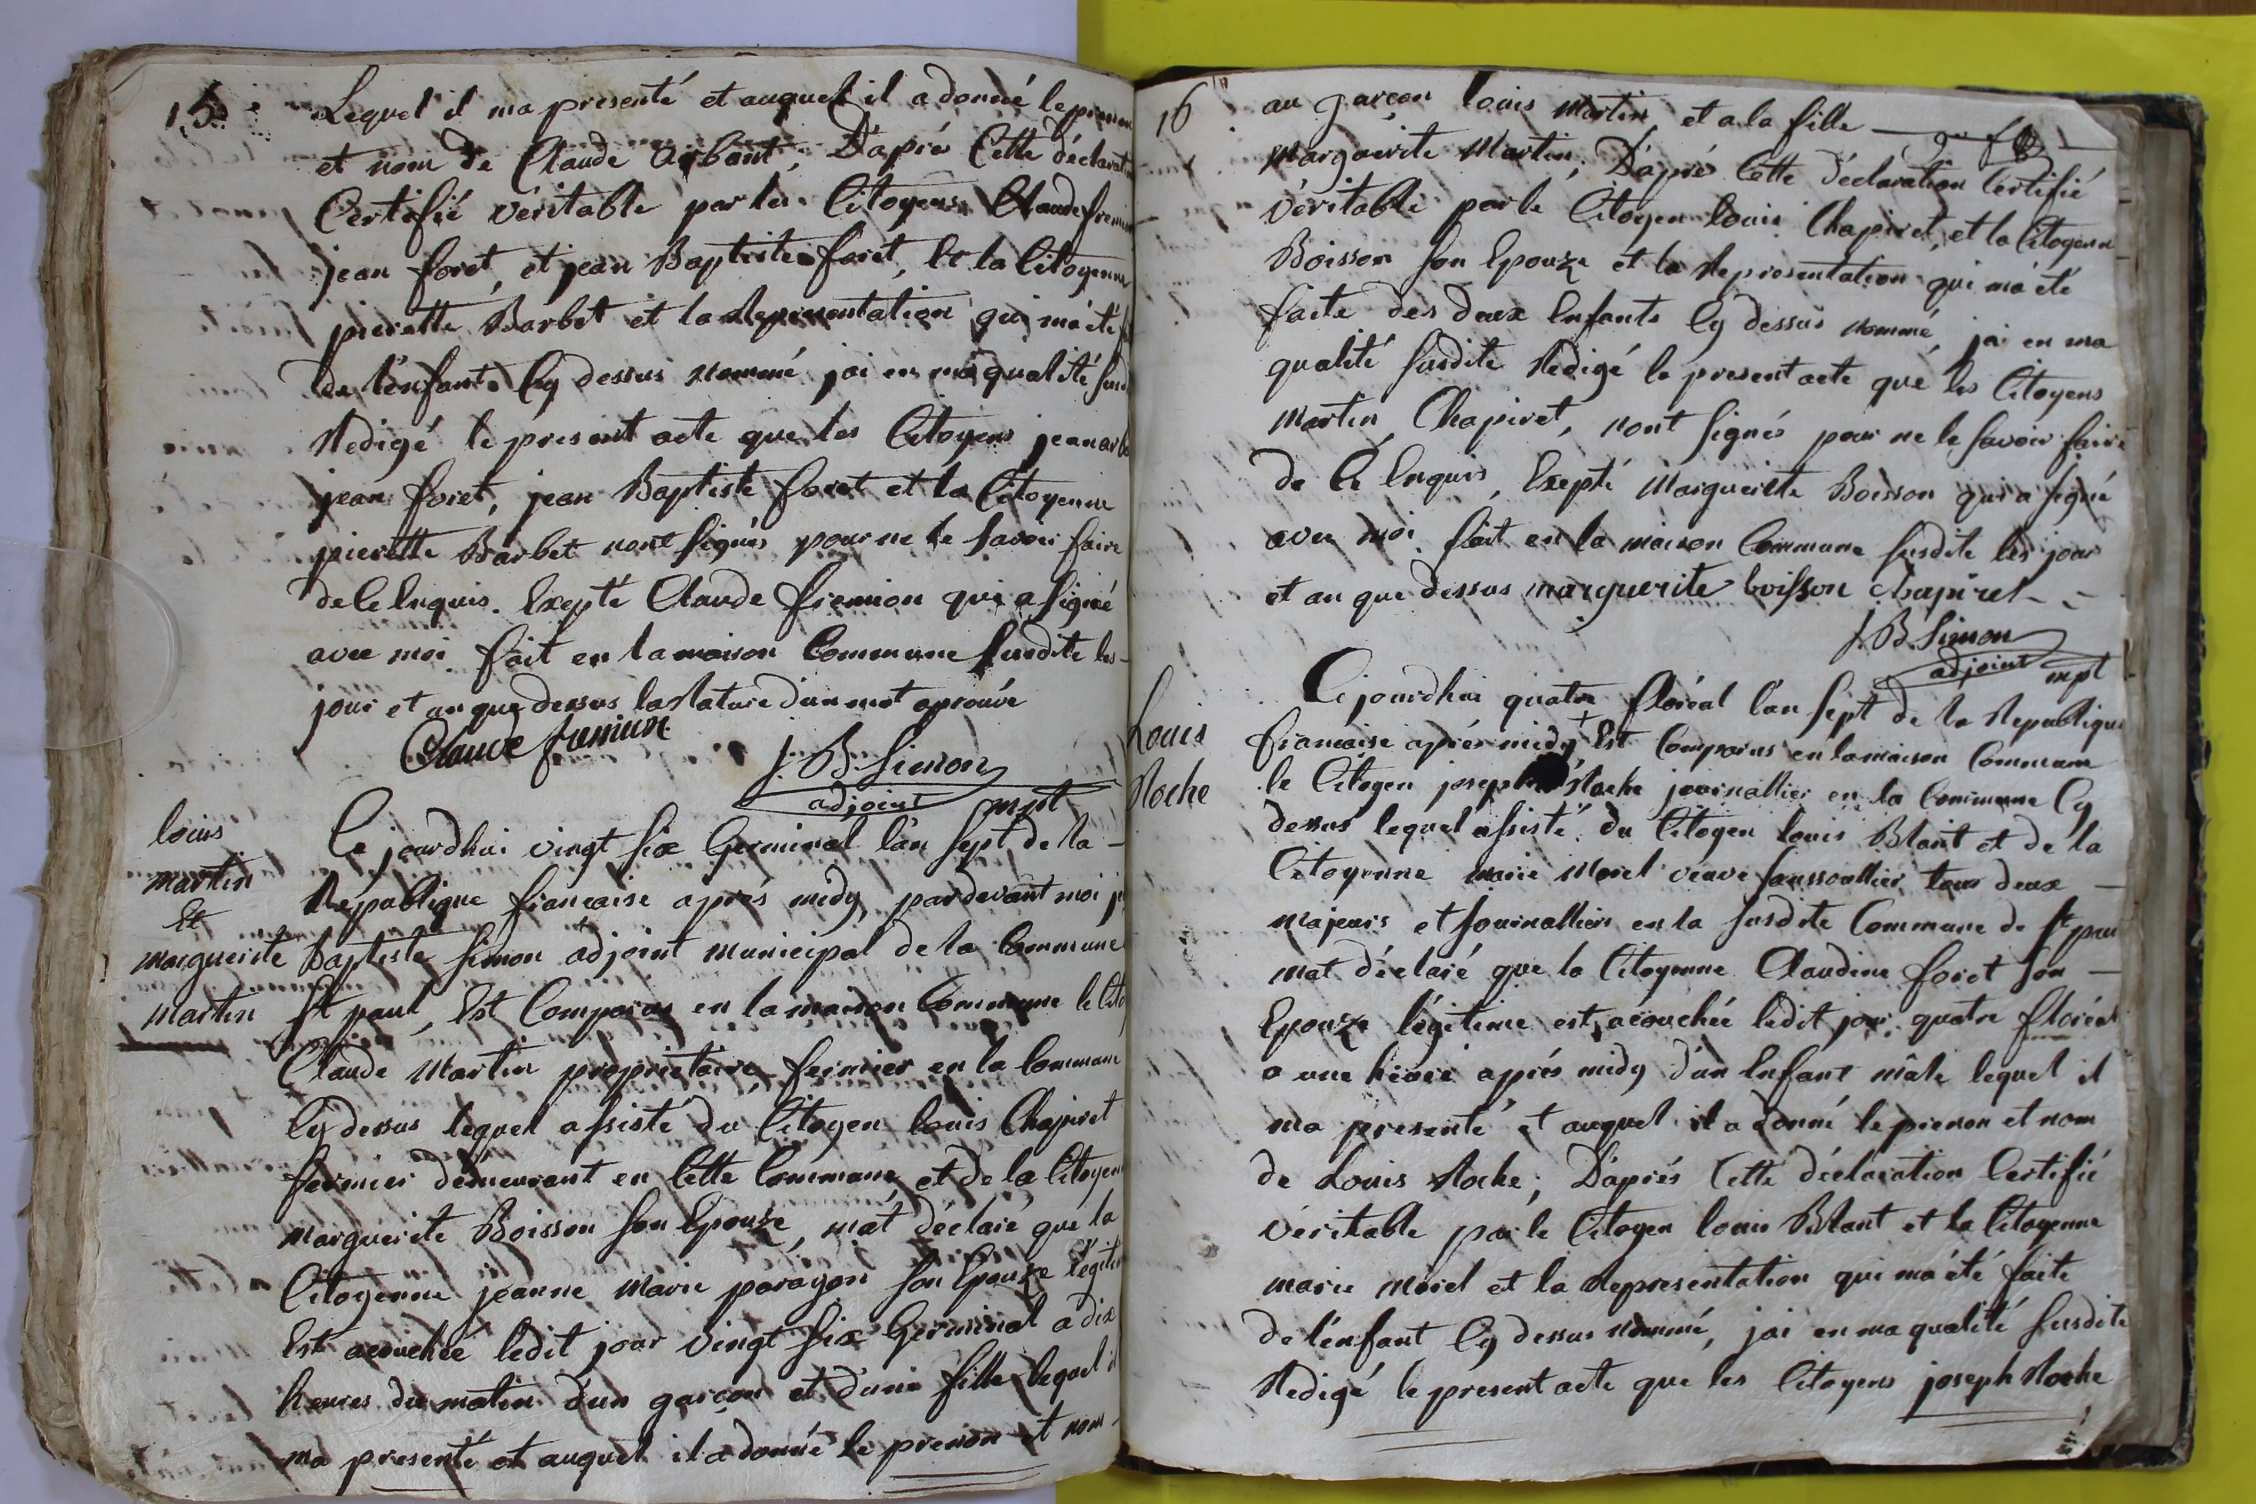 15
Lequel il ma presenté et auquel il a donné le prenom
et nom de Claude Arbant, D'apré Cette déclarat
Certifié véritable par les Citoyens Claude fremi
jean foret, et jean Baptiste foret, et la Citoyenne
pierette Barbet et la Representation qui ma été
de l'enfant Cy dessus nommé jai en ma qualité susd
Redigé le present acte que les Citoyens jean arb
jean foret, jean Baptiste foret et la Citoyenne
pierette Barbet nont signés pour ne le savoir faire
de Ce Enquis. Exepté Claude fremion qui a signé
avec moi fait en la maison Commune susdite les
jour et an que dessus la Rature d'un mot aprouvé
Claude fremion
J. B. Simon
adjoint mpl
louis
martin
Et
marguerite
martin
Ce jourdhui vingt six Germinal l'an sept de la
République francaise aprés midy, pardevant moi j
Baptiste Simon adjoint municipal de la Commune
St paul, Est Comparus en la maison Commune le Cito
Claude Martin propriétaire fermier en la Commune
Cy dessus lequel assisté du Citoyen louis Chapiret
fermier demeurant en Cette Commune et de la Citoyen
marguerite Boisson son Epouze, mat déclaré que la
Citoyenne jeanne Marie paragon son Epouze légiti
Est acouchée ledit jour vingt six Germinal a dix
heures du matin d'un garçon et d'une fille lequel il
ma presenté et auquel il a donné le prenon et nom
16
au garcon louis Martin et a la fille
Marguerite Martin, D'apré Cette déclaration Certifié
véritable par le Citoyen louis Chapiret, et la Citoyenn
Boisson son Epouze et la Representation qui ma été
faite des deux Enfants Cy dessus nommé, jai en ma
qualité susdite Redigé le present acte que les Citoyens
Martin, Chapiret, nont signés pour ne le savoir faire
de Ce Enquis, Exepté Marguerite Boisson qui a signé
avec moi fait en la maison Commune susdite les jour
et an que dessus marguerite boisson chapiret
J. B. Simon
adjoint mpl
Louis
Roche
Cejourdhui quatre floréal l'an sept de la Republique
francaise aprés midy Est Comparus en la maison Commune
le Citoyen joseph Roche journallier en la Commune Cy
dessus lequel assisté du Citoyen louis Blant et de la
Citoyenne marie Morel veuve saussoullier tous deux
majeurs et journalliers en la susdite Commune de St pau
mat déclaré que la Citoyenne Claudine foret son
Epouze légitime est acouchée ledit jour quatre floréal
a une heure aprés midy d'un Enfant mâle lequel il
ma presenté et auquel il a donné le prenon et nom
de Louis Roche; D'aprés Cette déclaration Certifié
véritable par le Citoyen louis Blant et la Citoyenne
marie Morel et la Representation qui ma été faite
de l'enfant Cy dessus nommé, jai en ma qualité susdite
Redigé le present acte que les Citoyens joseph Roche